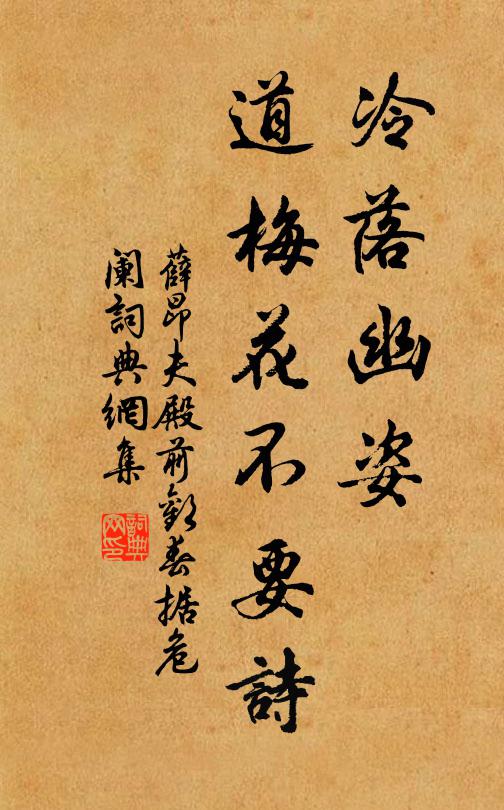 冷落幽姿
道梅花不要詩
薛昂夫殿前歡春據危
闌詞典網集
詞典
网印